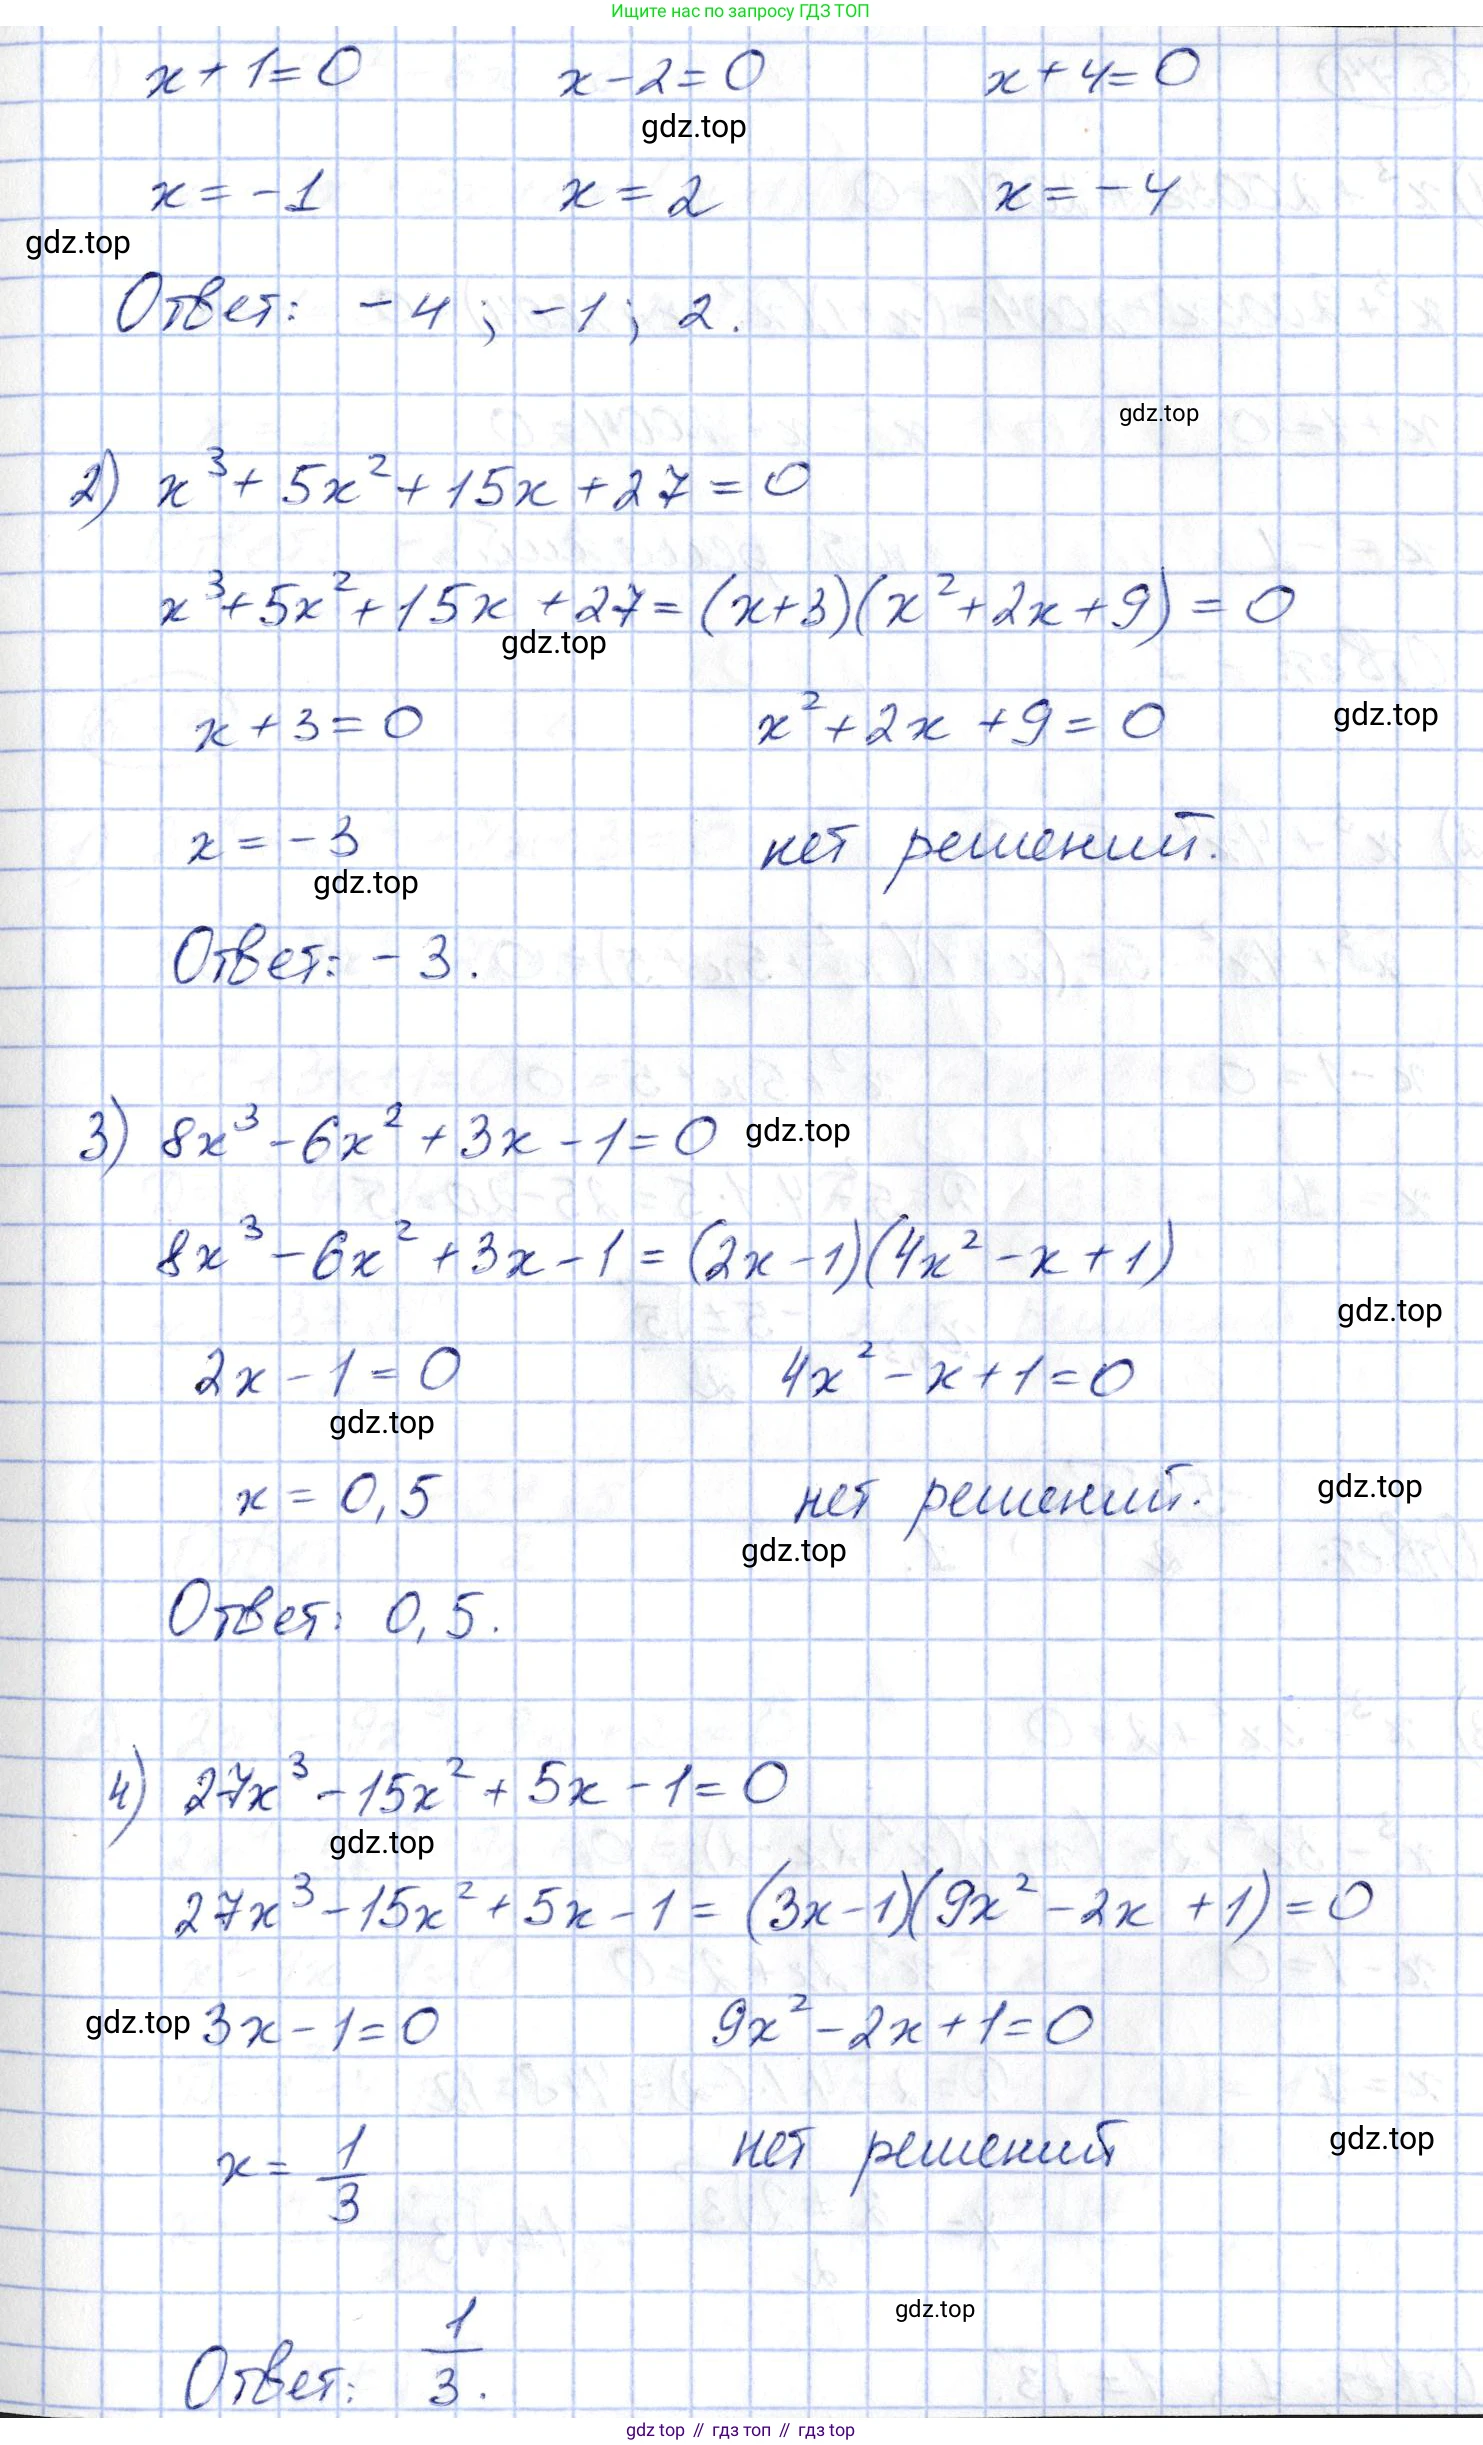 Ищите нас по запросу ГДЗ ТОП
x + 1 = 0 x - 2 = 0 x + 4 = 0
gdz.top
x = -1 x = 2 x = -4
gdz.top
Ответ: -4; -1; 2.
gdz.top
2) x³ + 5x² + 15x + 27 = 0
x³ + 5x² + 15x + 27 = (x+3)(x² + 2x + 9) = 0
gdz.top
x + 3 = 0 x² + 2x + 9 = 0 gdz.top
x = -3 нет решений.
gdz.top
Ответ: -3.
3) 8x³ - 6x² + 3x - 1 = 0 gdz.top
8x³ - 6x² + 3x - 1 = (2x - 1)(4x² - x + 1)
gdz.top
2x - 1 = 0 4x² - x + 1 = 0
gdz.top
x = 0,5 нет решений. gdz.top
gdz.top
Ответ: 0,5.
4) 27x³ - 15x² + 5x - 1 = 0
gdz.top
27x³ - 15x² + 5x - 1 = (3x - 1)(9x² - 2x + 1) = 0
gdz.top 3x - 1 = 0 9x² - 2x + 1 = 0
x = 1/3 нет решений gdz.top
gdz.top
Ответ: 1/3.
gdz top // гдз топ // гдз top